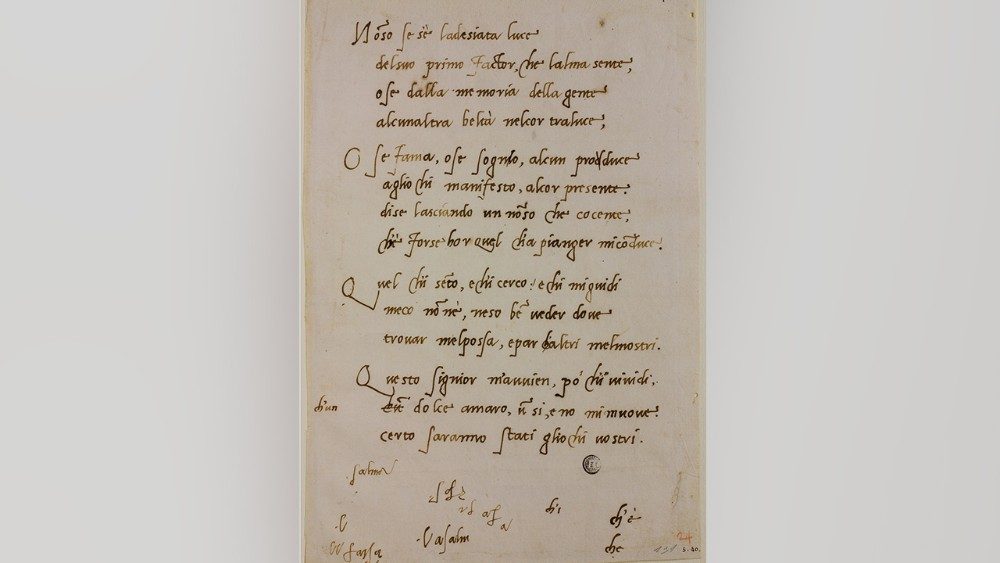 Nõso se s'è ladesiata luce
delsuo primo Factor, che lalma sente,
ose dalla memoria della gente
alcunaltra beltà nelcor traluce;
O se Fama, ose sognio, alcun prodduce
aglio chi manifesto, alcor presente:
dise lasciando un nõso che cocente,
ch'è Forse hor quel cha pianger micõduce.
Quel chi sẽto, e chi cerco: e chi miguidi
meco nõ nè, neso bẽ veder dove
trovar melpossa, e par chaltri melmostri.
Questo signior m'avvien, po' chi vividi,
ch'un dolce amaro, ũ si, e no mimuove:
certo saranno stati gliochi vostri.
salmo
ch'i
ch'è
Vasalm
che
24